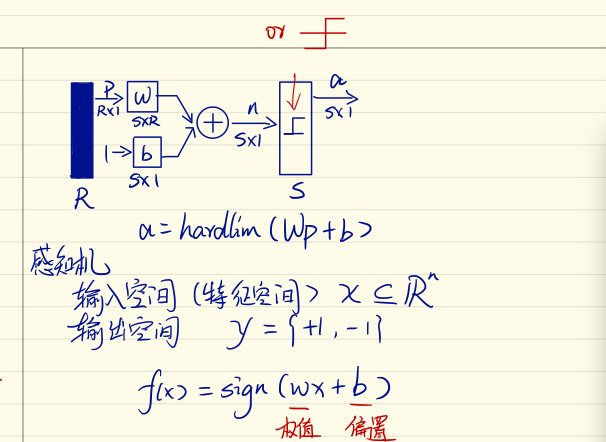 or
P
R×1
W
S×R
1
b
S×1
n
S×1
a
S×1
R
S
a = hardlim (Wp + b)
感知机
输入空间 (特征空间) x ⊆ ℝⁿ
输出空间 y = {+1, -1}
f(x) = sign (wx + b)
权值 偏置